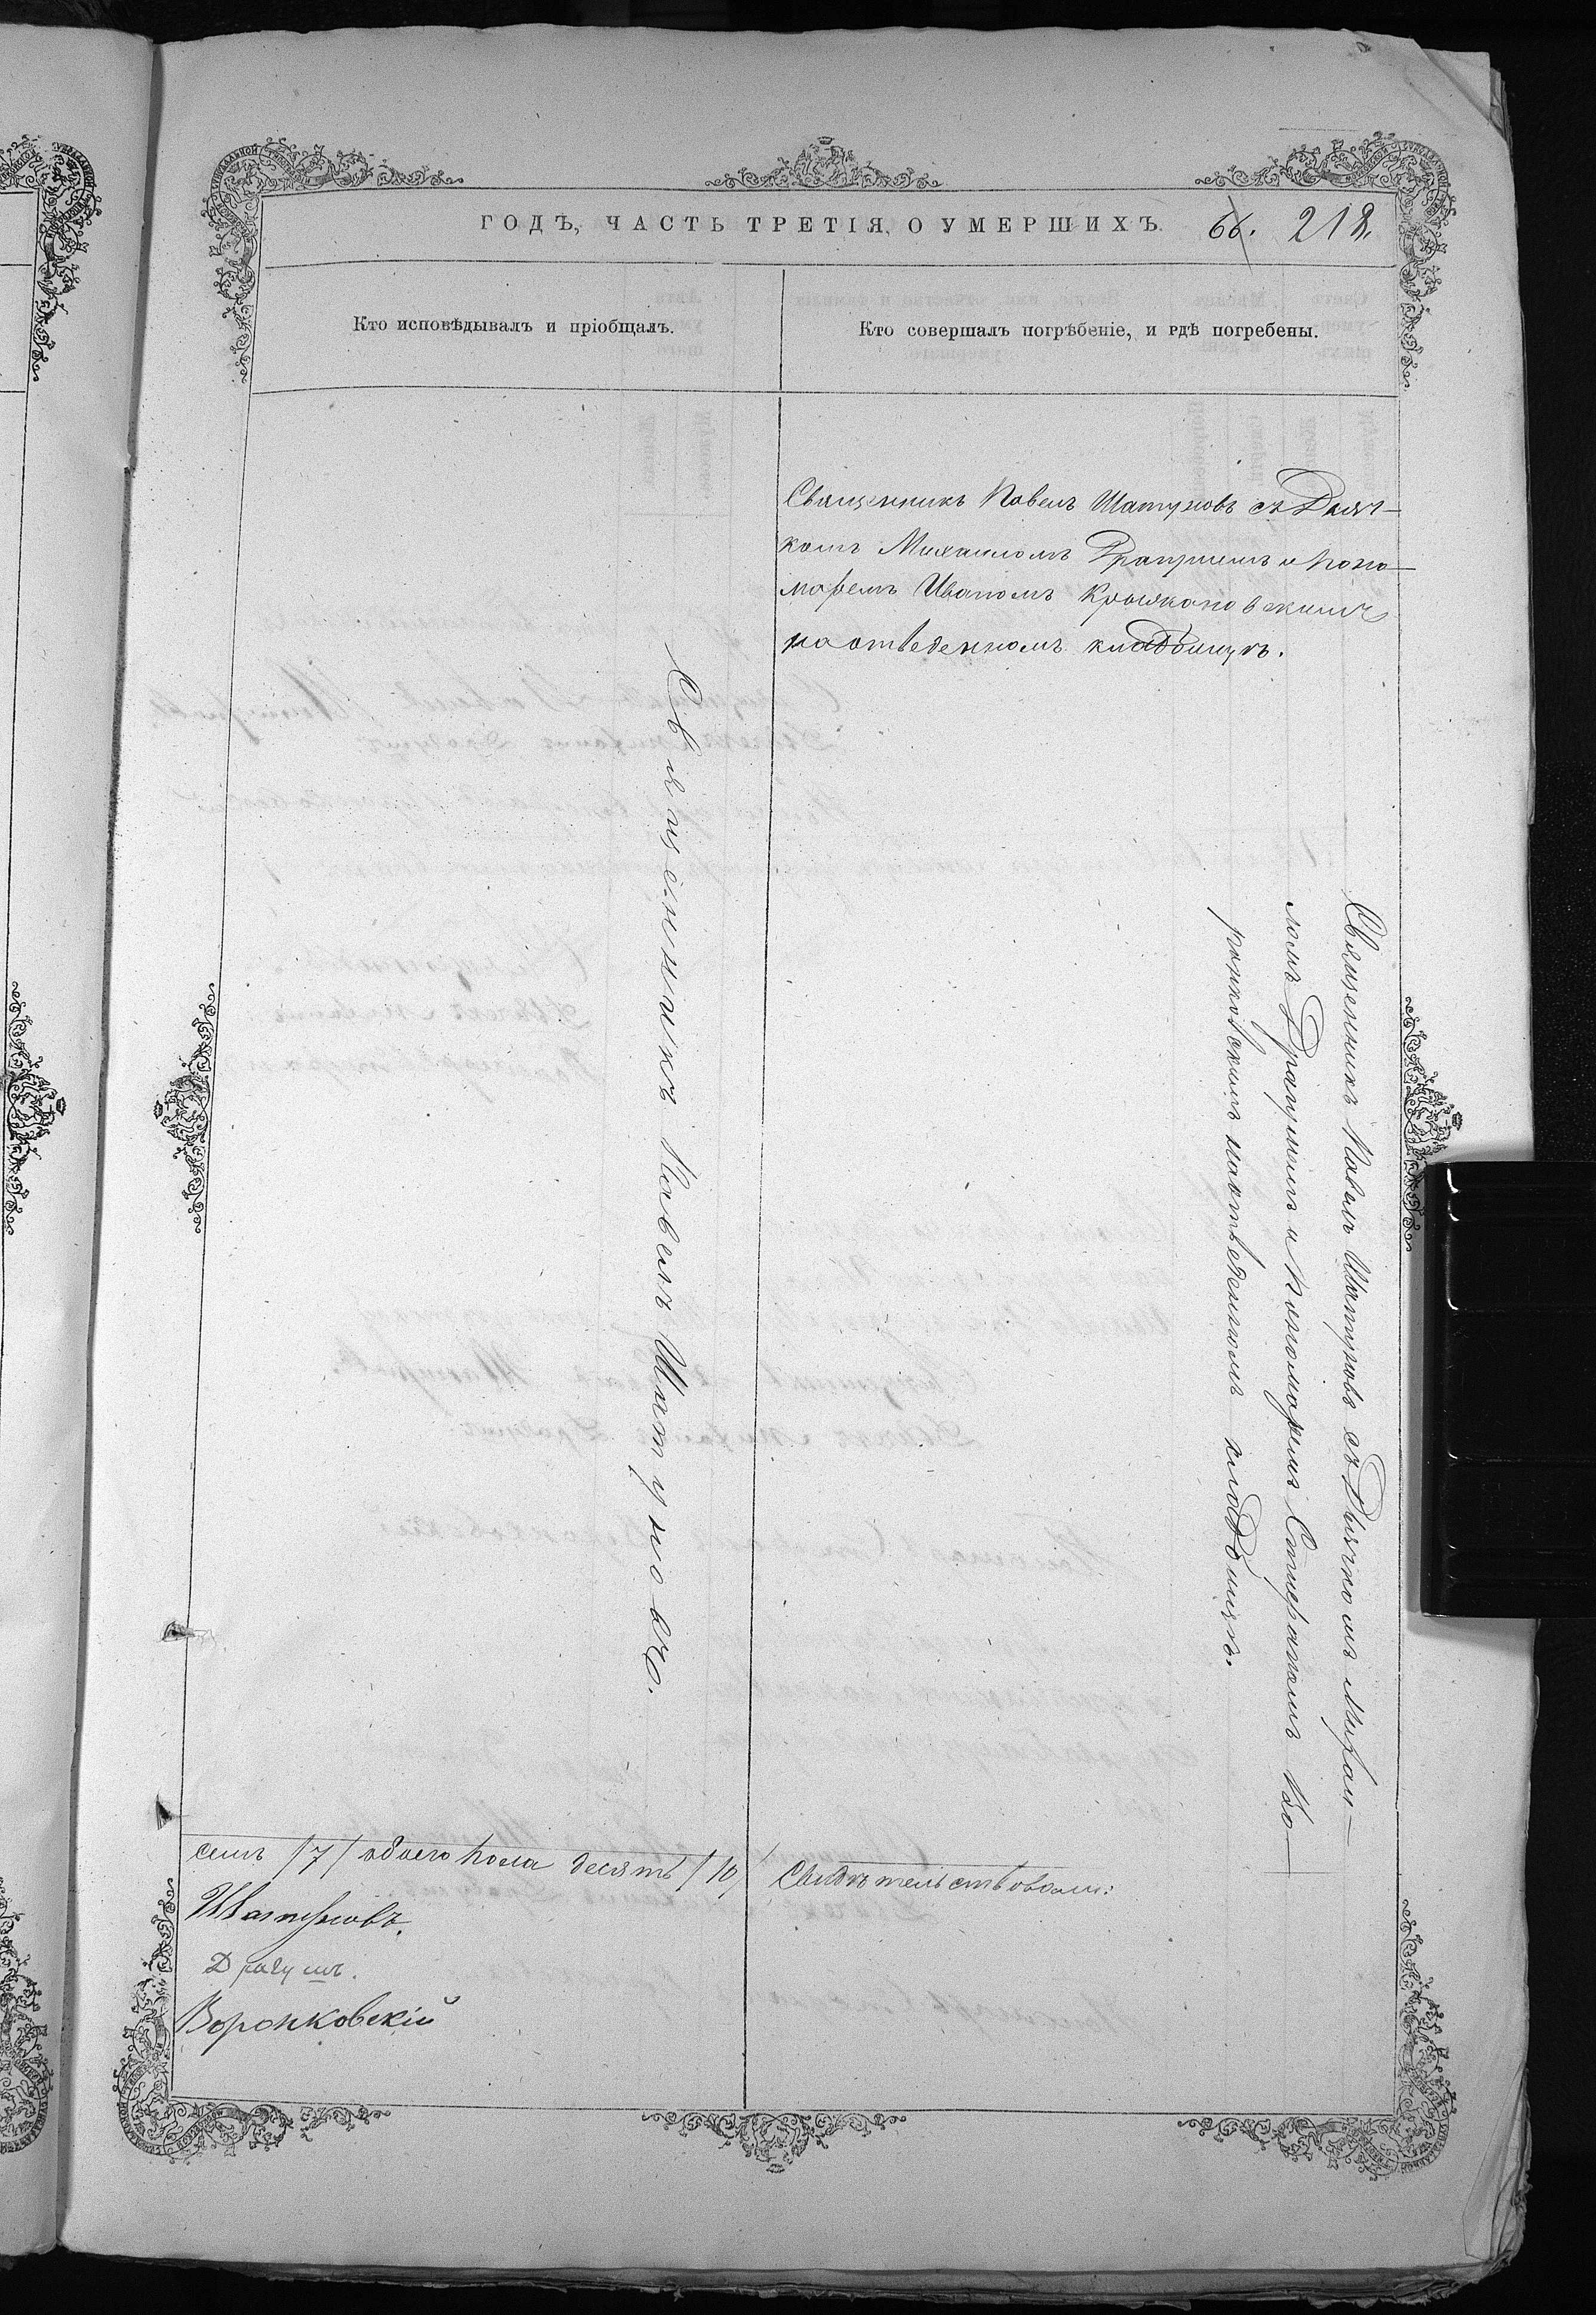 ГОДЪ, ЧАСТЬ ТРЕТІЯ, О УМЕРШИХЪ. 66. 218.
Кто исповѣдывалъ и пріобщалъ.
Кто совершалъ погрѣбеніе, и гдѣ погребены.
Священникъ Павелъ Шатуновъ съ Дьяч-
комъ Михаиломъ Драгушемъ и Поно-
маремъ Иваномъ Крыжановскимъ
на отведенномъ кладбищѣ.
Священникъ Павелъ Шатуновъ.
Священникъ Павелъ Шатуновъ съ Дьячкомъ Михаи-
ломъ Драгушемъ и Пономаремъ Стефаномъ Во-
ронковскимъ на отведенномъ кладбищѣ.
семъ /7/ обоего пола десять /10/ Свидѣтельствовали:
Шатуновъ.
Драгушъ.
Воронковскій